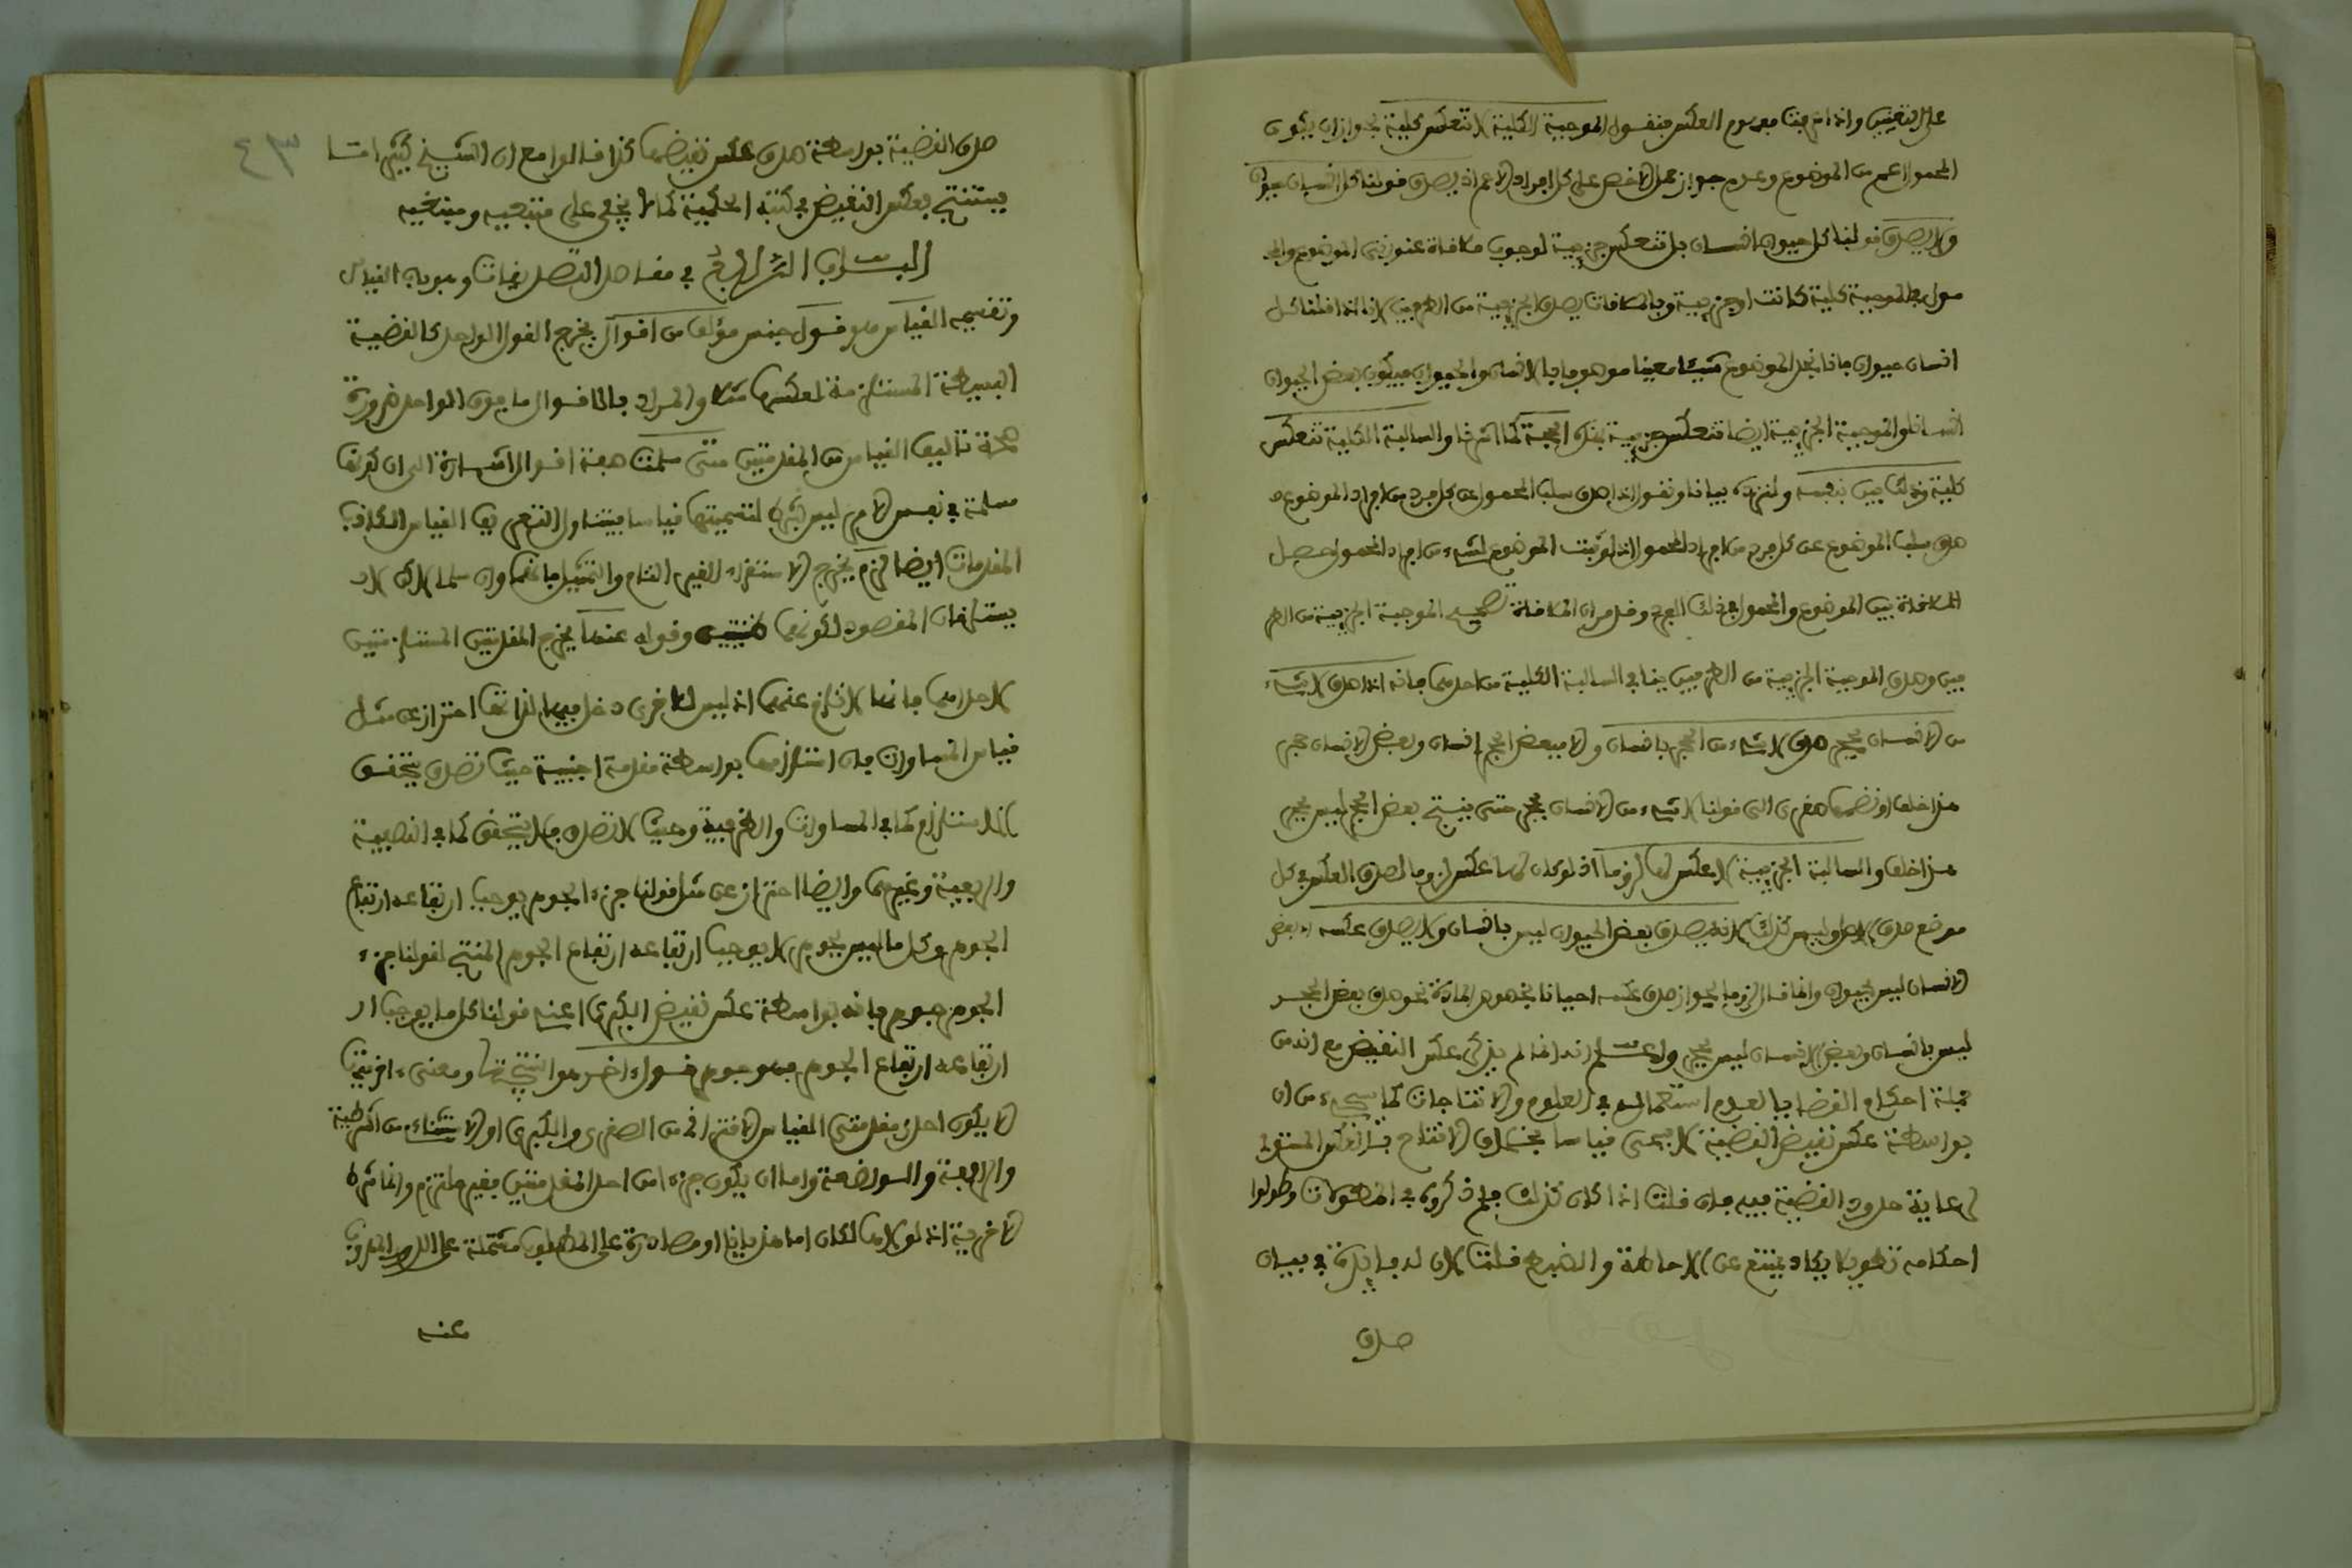 على التعيين واذا عرفت مفهوم العكس فنقول الموجبة الكلية لا تنعكس كلية لجواز ان يكون
المحمول اعم من الموضوع وعدم جواز حمل الاخص على كل افراد الاعم اذ يصدق قولنا كل انسان حيوان
ولا يصدق قولنا كل حيوان انسان بل تنعكس جزيية لوجوب ملاقاة عنوني الموضوع والمحـ
مول في الموجبة كلية كانت او جزيية وبالملاقات يصدق الجزيية من الطرفين لانا اذا قلنا كل
انسان حيوان فانا نجد الموضوع شيئا معينا موصوفا بالانسان والحيوان فيكون بعض الحيوان
انسانا والموجبة الجزيية ايضا تنعكس جزيية بهذه الحجة كما اشرنا والسالبة الكلية تنعكس
كلية وذلك بين بنفسه ولنزده بيانا ونقول اذا صدق سلب المحمول عن كل فرد من افراد الموضوع
صدق سلب الموضوع عن كل فرد من افراد المحمول اذ لو ثبت الموضوع لشيء من افراد المحمول حصل
الملاقاة بين الموضوع والمحمول في ذلك الفرد وقد مر ان الملاقاة تصحح الموجبة الجزيية من الطر
فين وصدق الموجبة الجزيية من الطرفين ينافي السالبة الكلية من احدهما فانه اذا صدق لا شيء
من الانسان بحجر صدق لا شيء من الحجر بانسان والا فبعض الحجر انسان وبعض الانسان حجر
هذا خلف او نضمها صغرى الى قولنا لا شيء من الانسان بحجر حتى ينتج بعض الحجر ليس بحجر
هذا خلف والسالبة الجزيية لا عكس لها لزوما اذ لو كان لها عكس لزوما لصدق العكس في كل
موضع صدق الاصل وليس كذلك لانه يصدق بعض الحيوان ليس بانسان ولا يصدق عكسه اي بعض
الانسان ليس بحيوان وانما قال لزوما لجواز صدق عكسه احيانا بخصوص المادة نحو صدق بعض الحجر
ليس بانسان وبعض الانسان ليس بحجر واعلم انه انما لم يذكر عكس النقيض مع انه من
جملة احكام القضايا لعدم استعماله في العلوم والانتاجات كما سيجيء من ان
بواسطة عكس نقيض القضية لا يسمى قياسا بخلاف الانتاج بالعكس المستوي
لرعاية حدود القضية فيه فان قلت اذا كان كذلك فلم ذكروه في المطولات وطولوا
احكامه تطويلا يكاد يمتنع عن الاحاطة والضبط قلت لان له فايدة في بيان
صدق
٤٣
صدق القضية بواسطة صدق عكس نقيضها كذا قالوا مع ان الشيخ كثيرا ما
يستنتج بعكس النقيض في كتبه الحكمية كما لا يخفى على متتبعيه ومنتخبيه
الباب الرابع في مقاصد التصديقات وهو باب القياس
وتقسيمه القياس هو قول جنس مؤلف من اقوال يخرج القول الواحد كالقضية
البسيطة المستلزمة لعكسها مثلا والمراد بالاقوال ما فوق الواحد ضرورة
صحة تاليف القياس من المقدمتين متى سلمت هذه اقوال اشارة الى ان كونها
مسلمة في نفس الامر ليس بشرط لتسميتها قياسا ليتناول التعريف القياس الكاذب
المقدمات ايضا لزم يخرج الاستقراء الغير التام والتمثيل فانهما وان سلما لكن لا
يستلزمان المقصود لكونهما ظنيين وقوله عنها يخرج المقدمتين المستلزمتين
لاحداهما فانها لا تلزم عنهما اذ ليس للاخرى دخل فيها لذاتها احتراز عن مثل
قياس المساوات فان استلزامها بواسطة مقدمة اجنبية حيث تصدق يتحقق
الاستلزام كما في المساوات والظرفية وحيث لا تصدق فلا يتحقق كما في النصفية
والربعية وغيرهما وايضا احتراز عن مثل قولنا جزء الجوهر يوجب ارتفاعه ارتفاع
الجوهر وكل ما ليس بجوهر لا يوجب ارتفاعه ارتفاع الجوهر المنتج لقولنا جزء
الجوهر جوهر فانه بواسطة عكس نقيض الكبرى اعنى قولنا كل ما يوجب ار
ارتفاعه ارتفاع الجوهر فهو جوهر قول اخر هو النتيجة ومعنى اخريتها
الا يكون احدى مقدمتي القياس الاقتراني من الصغرى والكبرى او الاستثناء من الشرطية
والرافعة والواضعة واما ان يكون جزءا من احد المقدمتين فغير ملتزم وانما شرط
الاخرية اذ لولاها لكان اما هذيانا او مصادرة على المطلوب مشتملة على الدور المهروب
عنه